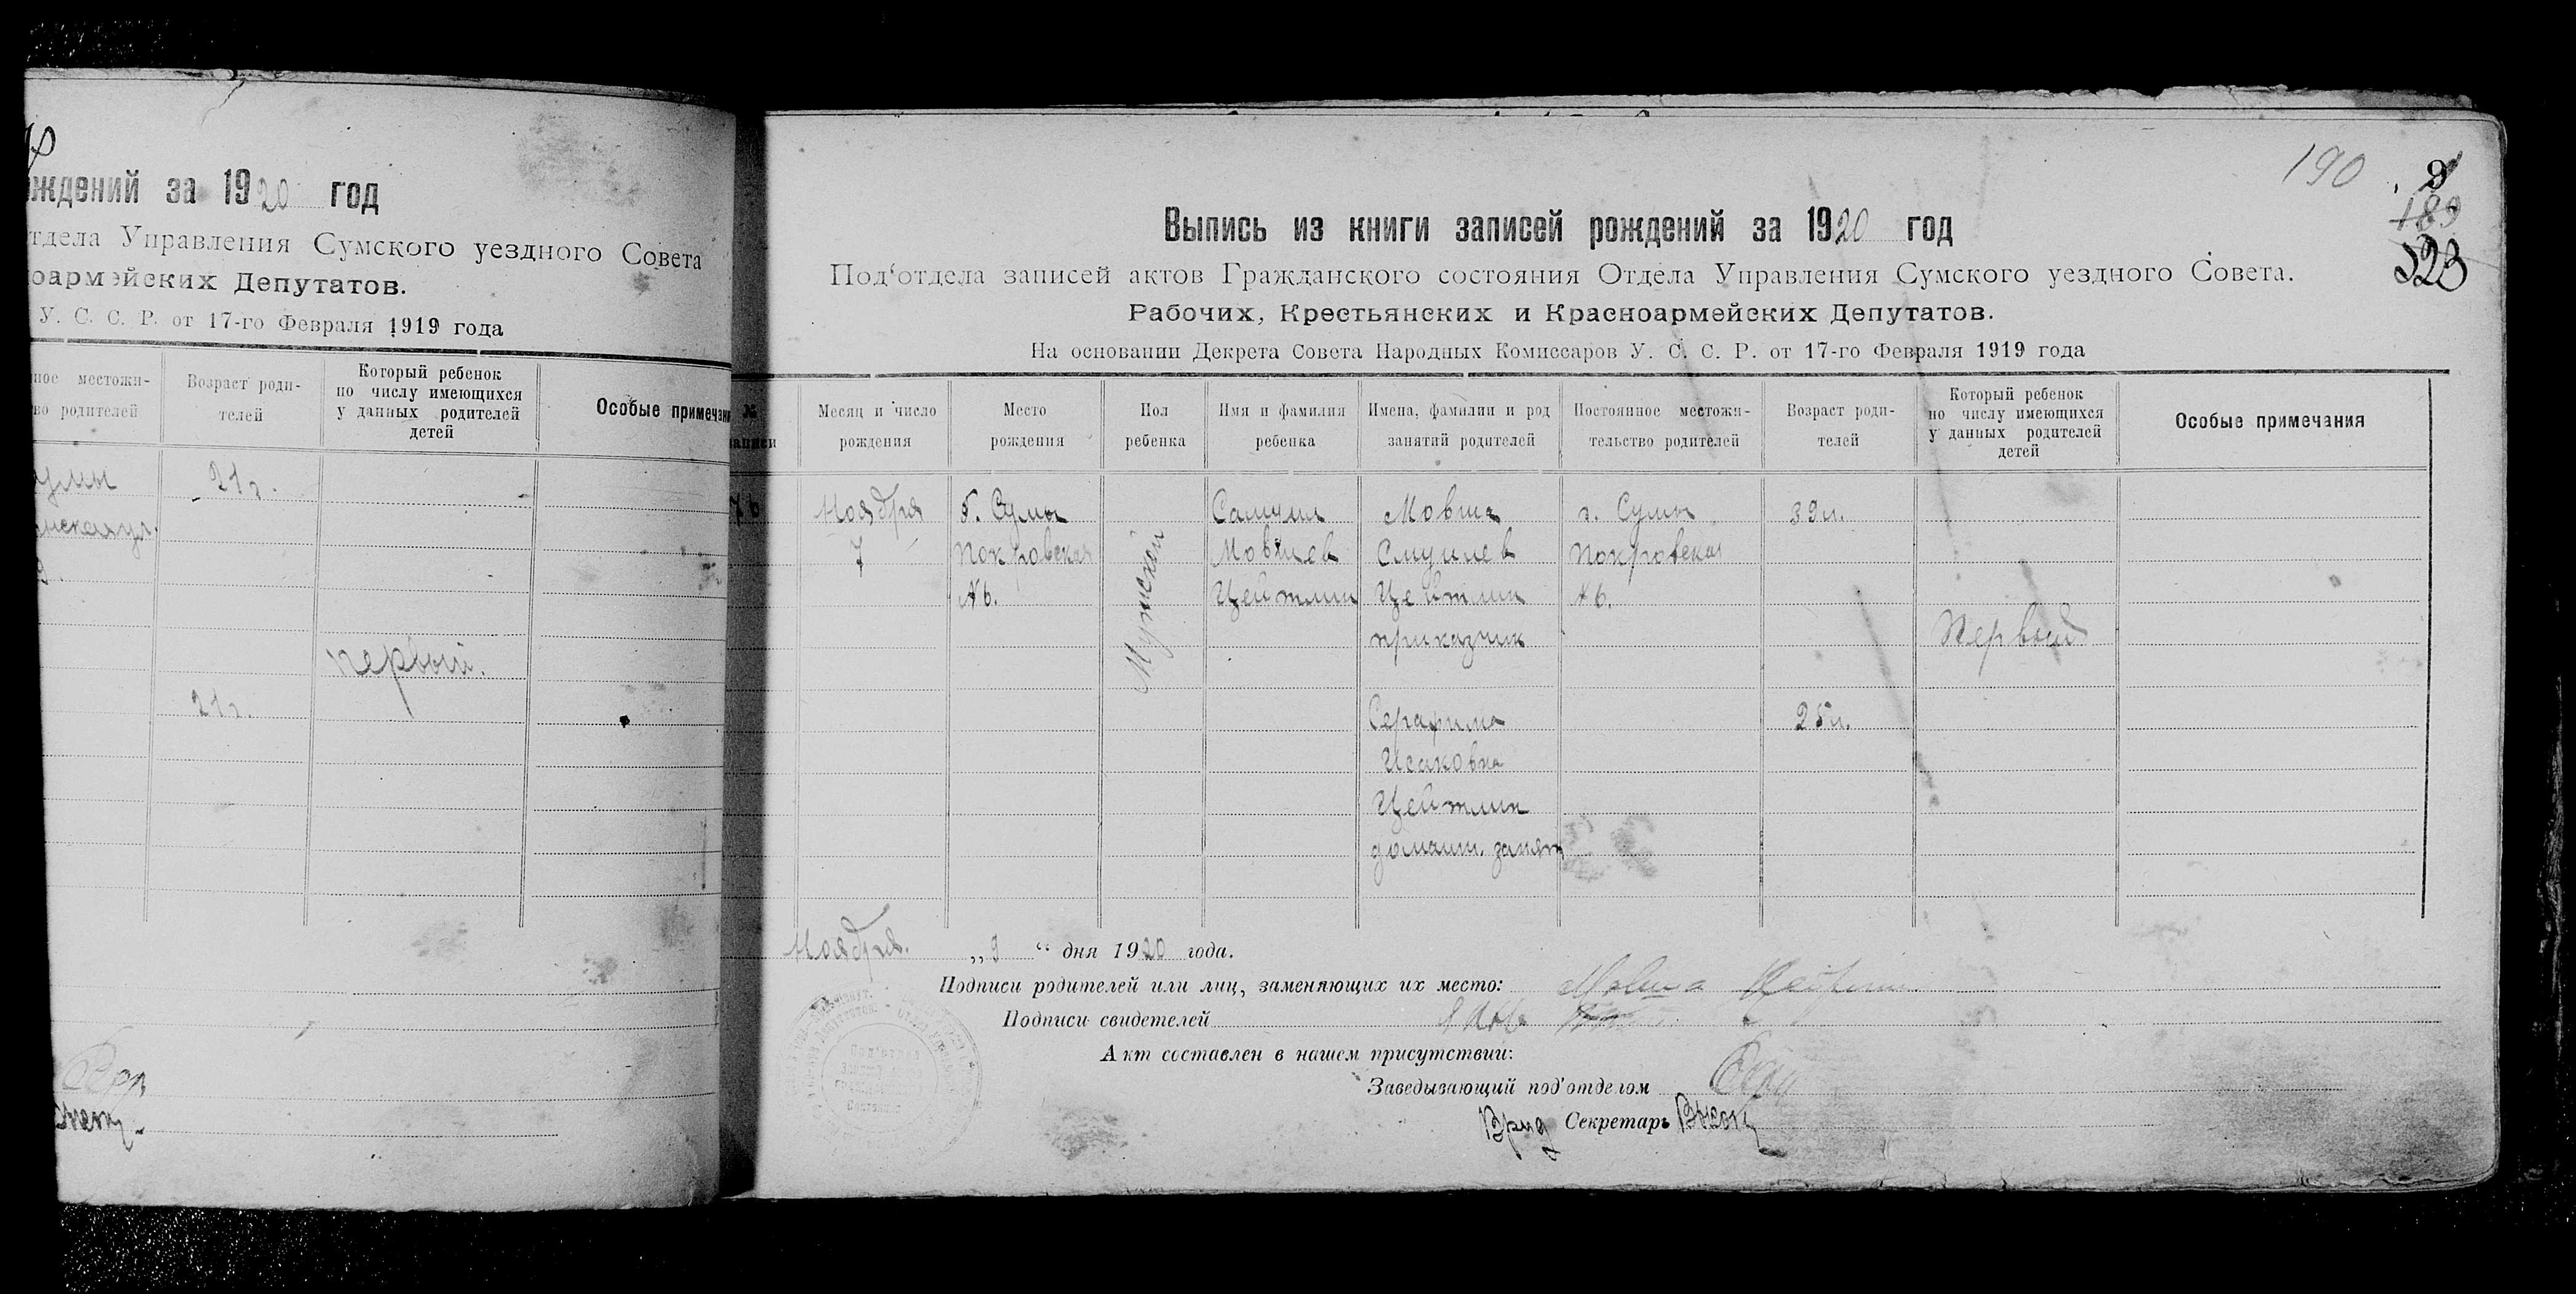 ождений за 1920 год
тдела Управления Сумского уездного Совета
оармейских Депутатов.
У. С. С. Р. от 17-го Февраля 1919 года
ное местожи-
во родителей
Возраст роди-
телей
Который ребенок
по числу имеющихся
у данных родителей
детей
Особые примечани
умы
21 г.
первый.
21 г.
190
9
189
523
Выпись из книги записей рождений за 1920 год
Под‘отдела записей актов Гражданского состояния Отдела Управления Сумского уездного Совета.
Рабочих, Крестьянских и Красноармейских Депутатов.
На основании Декрета Совета Народных Комиссаров У. С. С. Р. от 17-го Февраля 1919 года
№
записи
Месяц и число
рождения
Место
рождения
Пол
ребенка
Имя и фамилия
ребенка
Имена, фамилии и род
занятий родителей
Постоянное местожи-
тельство родителей
Возраст роди-
телей
Который ребенок
по числу имеющихся
у данных родителей
детей
Особые примечания
Ноября
7
г. Сумы
Покровская
№6.
Мужской
Самуил
Мовшев
Цейтлин
Мовша
Смуилев
Цейтлин
приказчик
Серафима
Исаковна
Цейтлин
домашн. занят
г. Сумы
Покровская
№6.
39 л.
25 л.
Первый
Ноября. „ 9 “ дня 1920 года.
Подписи родителей или лиц, заменяющих их место: Мовша Цейтлин
Подписи свидетелей
Акт составлен в нашем присутствии:
Заведывающий под'отделом
Врид Секретарь